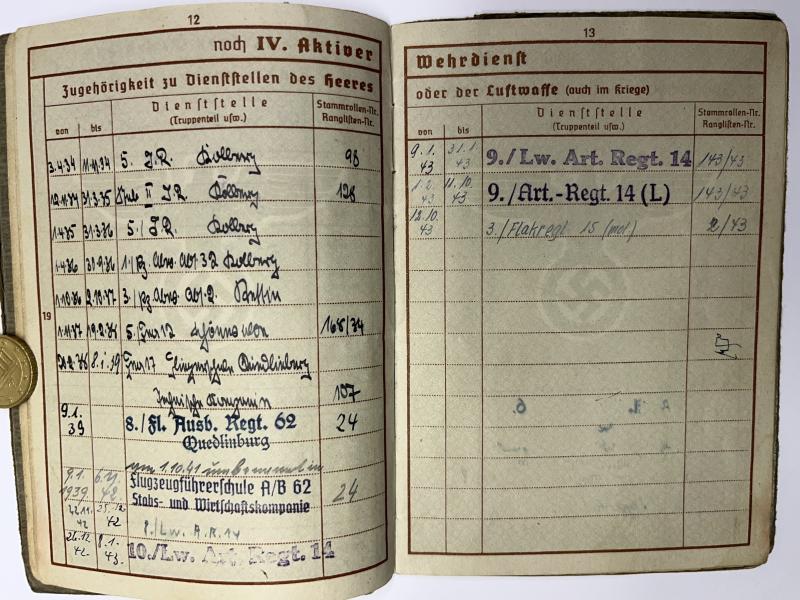 12
noch IV. Aktiver
Zugehörigkeit zu Dienststellen des Heeres
von bis
Dienststelle
(Truppenteil usw.)
Stammrollen-Nr.
Ranglisten-Nr.
3.4.34 11.11.34 5. I.R. Kolberg 98
12.11.34 31.3.35 II I.R. Kolberg 128
1.4.35 31.3.36 5./I.R. Kolberg
1.4.36 30.9.36 1./Pz. Abw. Abt. 32 Kolberg
1.10.36 2.10.37 3./Pz. Abw. Abt. 2.
19
5. 168/34
8.1.39 Quedlinburg
Kompanie 107
9.1.
39
8./Fl. Ausb. Regt. 62 24
Quedlinburg
am 1.10.41 umbenannt in
9.1.
1939
42
Flugzeugführerschule A/B 62 24
Stabs- und Wirtschaftskompanie
22.11.
42
25.12.
42
8./Lw. A.R. 14
26.12.
42.
8.1.
43.
10./Lw. Art. Regt. 14
13
Wehrdienst
oder der Luftwaffe (auch im Kriege)
von bis
Dienststelle
(Truppenteil usw.)
Stammrollen-Nr.
Ranglisten-Nr.
9.1.
43
31.1.
43
9./Lw. Art. Regt. 14 143/43
1.2.
43
11.10.
43
9./Art.-Regt. 14 (L) 143/43
12.10.
43
3./Flakregt. 15 (mot.) 2/43